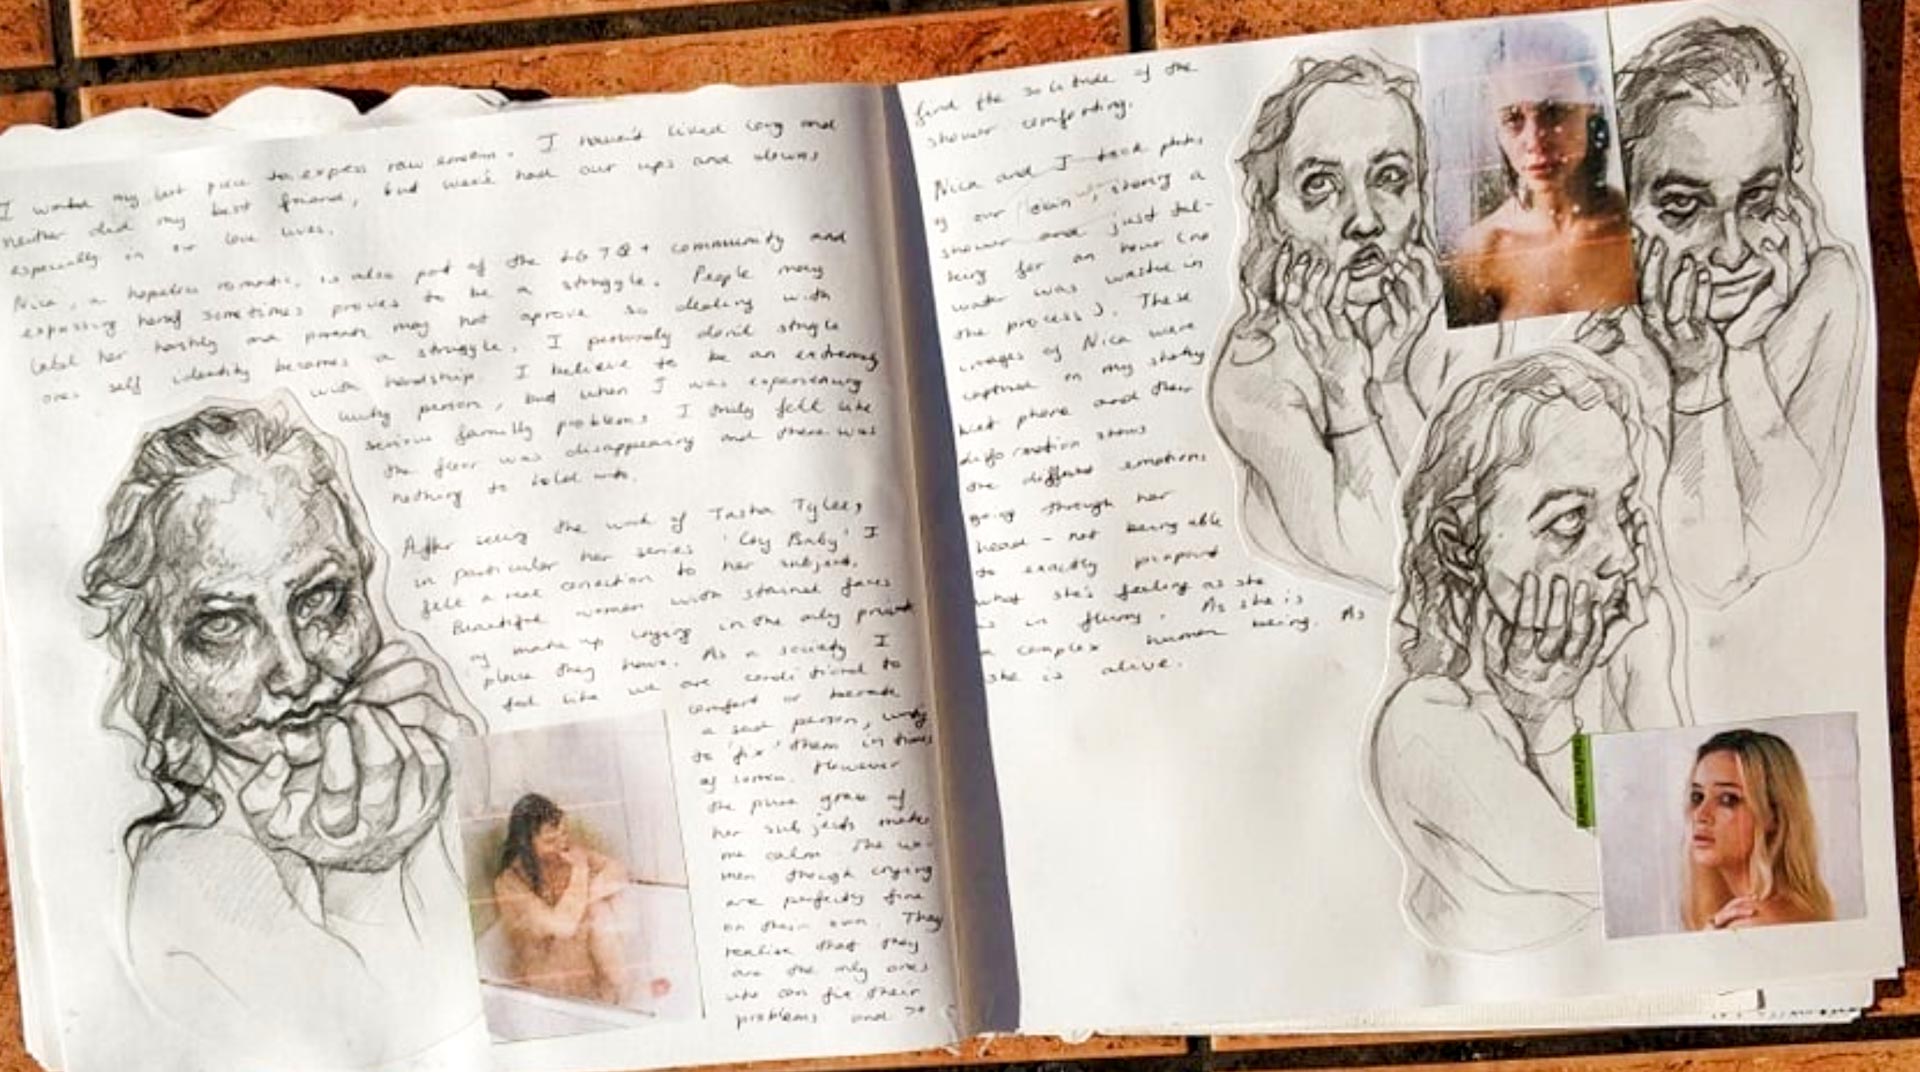 I wanted my last piece to express raw emotion. I haven't lived long and
neither did my best friend, but we've had our ups and downs
especially in our love lives.
Nica, a hopeless romantic, is also part of the LGTQ+ community and
expressing herself sometimes proves to be a struggle. People may
label her harshly and parents may not aprove so dealing with
ones self identity becomes a struggle. I personaly don't stugle
with hardship. I believe to be an extremely
lucky person, but when I was experiencing
serious familly problems I truly felt like
the floor was disappearing and there was
nothing to hold onto.
After seeing the work of Tasha Tylee,
in particular her series 'Cry Baby' I
felt a real conection to her subject.
Beautiful women with stained faces
of make up crying in the only private
place they have. As a society I
feel like we are conditional to
comfort or berate
a sad person,
to 'fix' them in times
of sorrow. However
the pure grace of
her subjects makes
me calm. The wo-
men though crying
are perfectly fine
on their own. They
realise that they
are the only ones
who can fix their
problems and so
find the solitude of the
shower comforting.
Nica and I took photos
of our own, sharing a
shower and just tal-
king for an hour (no
water was wasted in
the process). These
images of Nica were
captured on my shakey
wet phone and their
deformation shows
the different emotions
going through her
head - not being able
to exactly pinpoint
what she's feeling as she
is in flurry. As she is
a complex human being. As
she is alive.